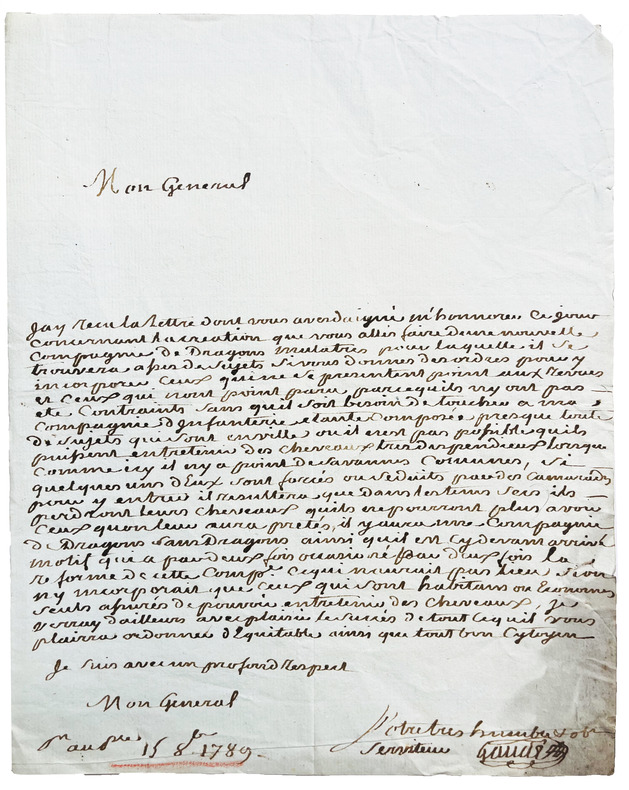 Mon General
Jay recu la Lettre dont vous aves daigné m'honnorer ce jour
concernant la creation que vous allés faire dune nouvelle
Compagnie de Dragons mulatres pour laquelle il se
trouvera assés de sujets si vous donnes des ordres pour y
incorporer ceux qui ne se presentent point aux revues
et ceux qui nont point paru parcequils ny ont pas
eté contraints sans quil soit besoin de toucher a ma
Compagnie d'Infanterie etant composée presque toute
de sujets qui sont en ville ou il nest pas possible quils
puissent entretenir des chevaux tres dispendieux lorsque
comme icy il ny a point de savannes Comunes, si
quelques uns d'Eux sont forcés ou seduits par des Camarades
pour y entrer il resultera que dans les tems secs ils
perdront leurs chevaux quils ne pourront plus avoir
ceux quon leur aura pretés, il y aura une Compagnie
de Dragons sans Dragons ainsi quil est cydevant arrivé
motif qui a par deux fois
reforme de cette Comp.e ce qui nauroit pas lieu si on
ny incorporait que ceux qui sont habitans ou Economes
seuls assurés de pouvoir entretenir des chevaux, Je
verray dailleurs avec plaisir le succes de tout ce quil vous
plairra ordonner d'Equitable ainsi que tout bon Cytoyen
Je suis avec un profond respect
Mon General
15 8bre 1789
Votre tres humble & ob
Serviteur